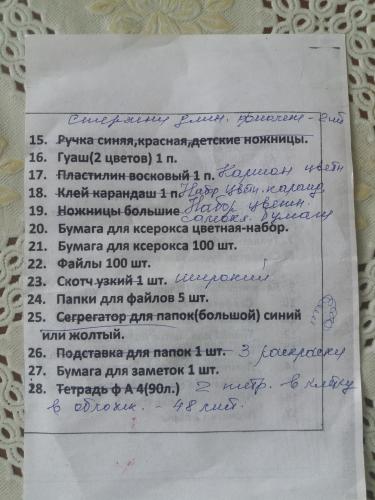 Стержни длин. - 2шт
15. Ручка синяя,красная,детские ножницы.
16. Гуаш(2 цветов) 1 п.
17. Пластилин восковый 1 п. Картон цветн
18. Клей карандаш 1 п Набор цветн. каранд
19. Ножницы большие Набор цветн.
бумаги
20. Бумага для ксерокса цветная-набор.
21. Бумага для ксерокса 100 шт.
22. Файлы 100 шт.
23. Скотч узкий 1 шт. широкий
24. Папки для файлов 5 шт.
25. Сегрегатор для папок(большой) синий
или жолтый.
26. Подставка для папок 1 шт. 3 раскраски
27. Бумага для заметок 1 шт.
28. Тетрадь ф А 4(90л.) 2 тетр. в клетку
в облож. - 48 лист.